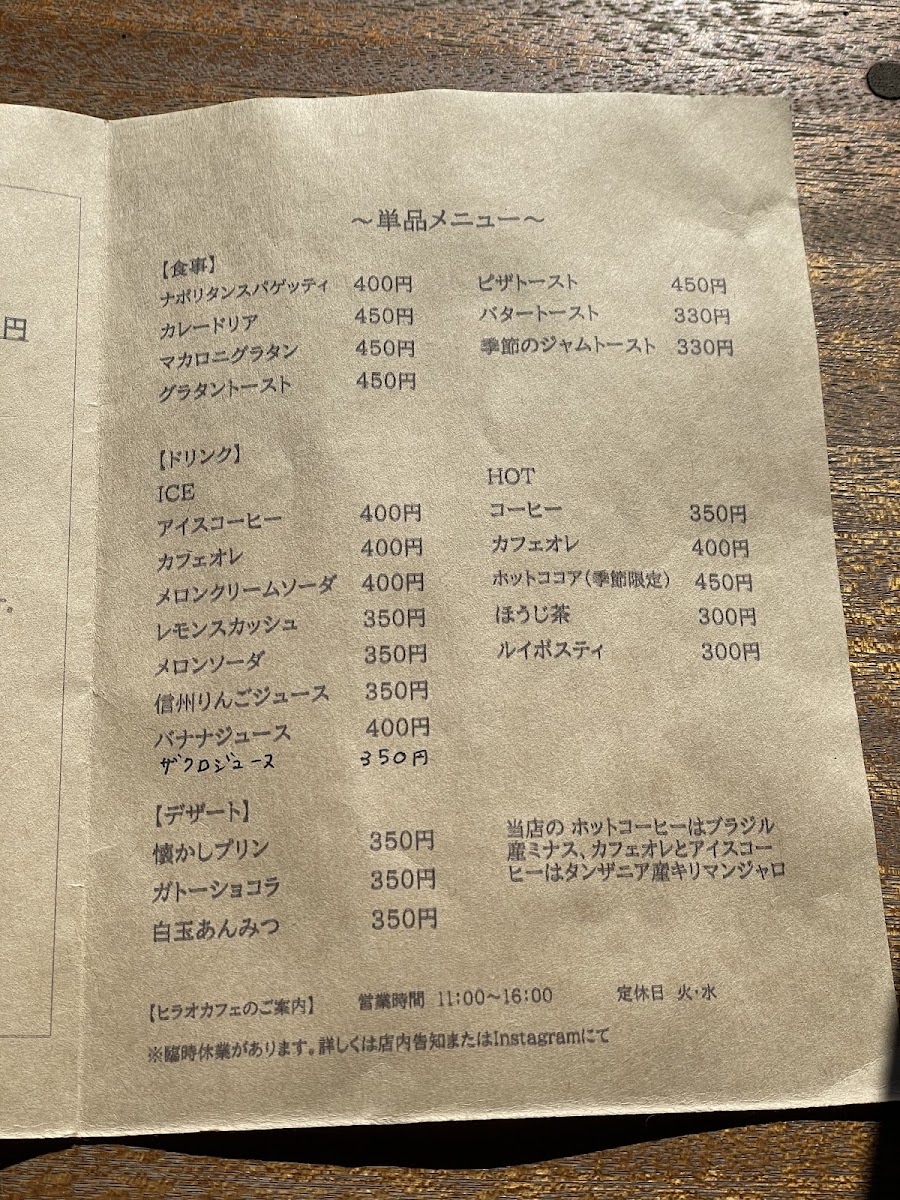 円
す。
～単品メニュー～
【食事】
ナポリタンスパゲッティ 400円
カレードリア 450円
マカロニグラタン 450円
グラタントースト 450円
ピザトースト 450円
バタートースト 330円
季節のジャムトースト 330円
【ドリンク】
ICE
アイスコーヒー 400円
カフェオレ 400円
メロンクリームソーダ 400円
レモンスカッシュ 350円
メロンソーダ 350円
信州りんごジュース 350円
バナナジュース 400円
ザクロジュース 350円
HOT
コーヒー 350円
カフェオレ 400円
ホットココア(季節限定) 450円
ほうじ茶 300円
ルイボスティ 300円
【デザート】
懐かしプリン 350円
ガトーショコラ 350円
白玉あんみつ 350円
当店の ホットコーヒーはブラジル
産ミナス、カフェオレとアイスコー
ヒーはタンザニア産キリマンジャロ
【ヒラオカフェのご案内】 営業時間 11:00～16:00 定休日 火・水
※臨時休業があります。詳しくは店内告知またはInstagramにて